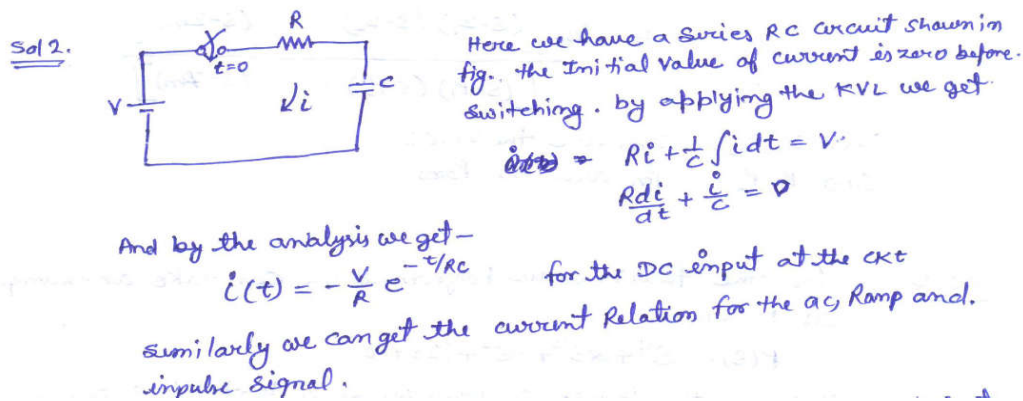 Sol 2.
R
t=0
V
i
C
Here we have a Series RC circuit shown in
fig. the Initial value of current is zero before
switching. by applying the KVL we get
Ri + 1/C ∫idt = V.
R di/dt + i/C = 0
And by the analysis we get -
i(t) = - V/R e^-t/RC for the DC input at the ckt
Similarly we can get the current Relation for the ac, Ramp and.
inpulse signal.